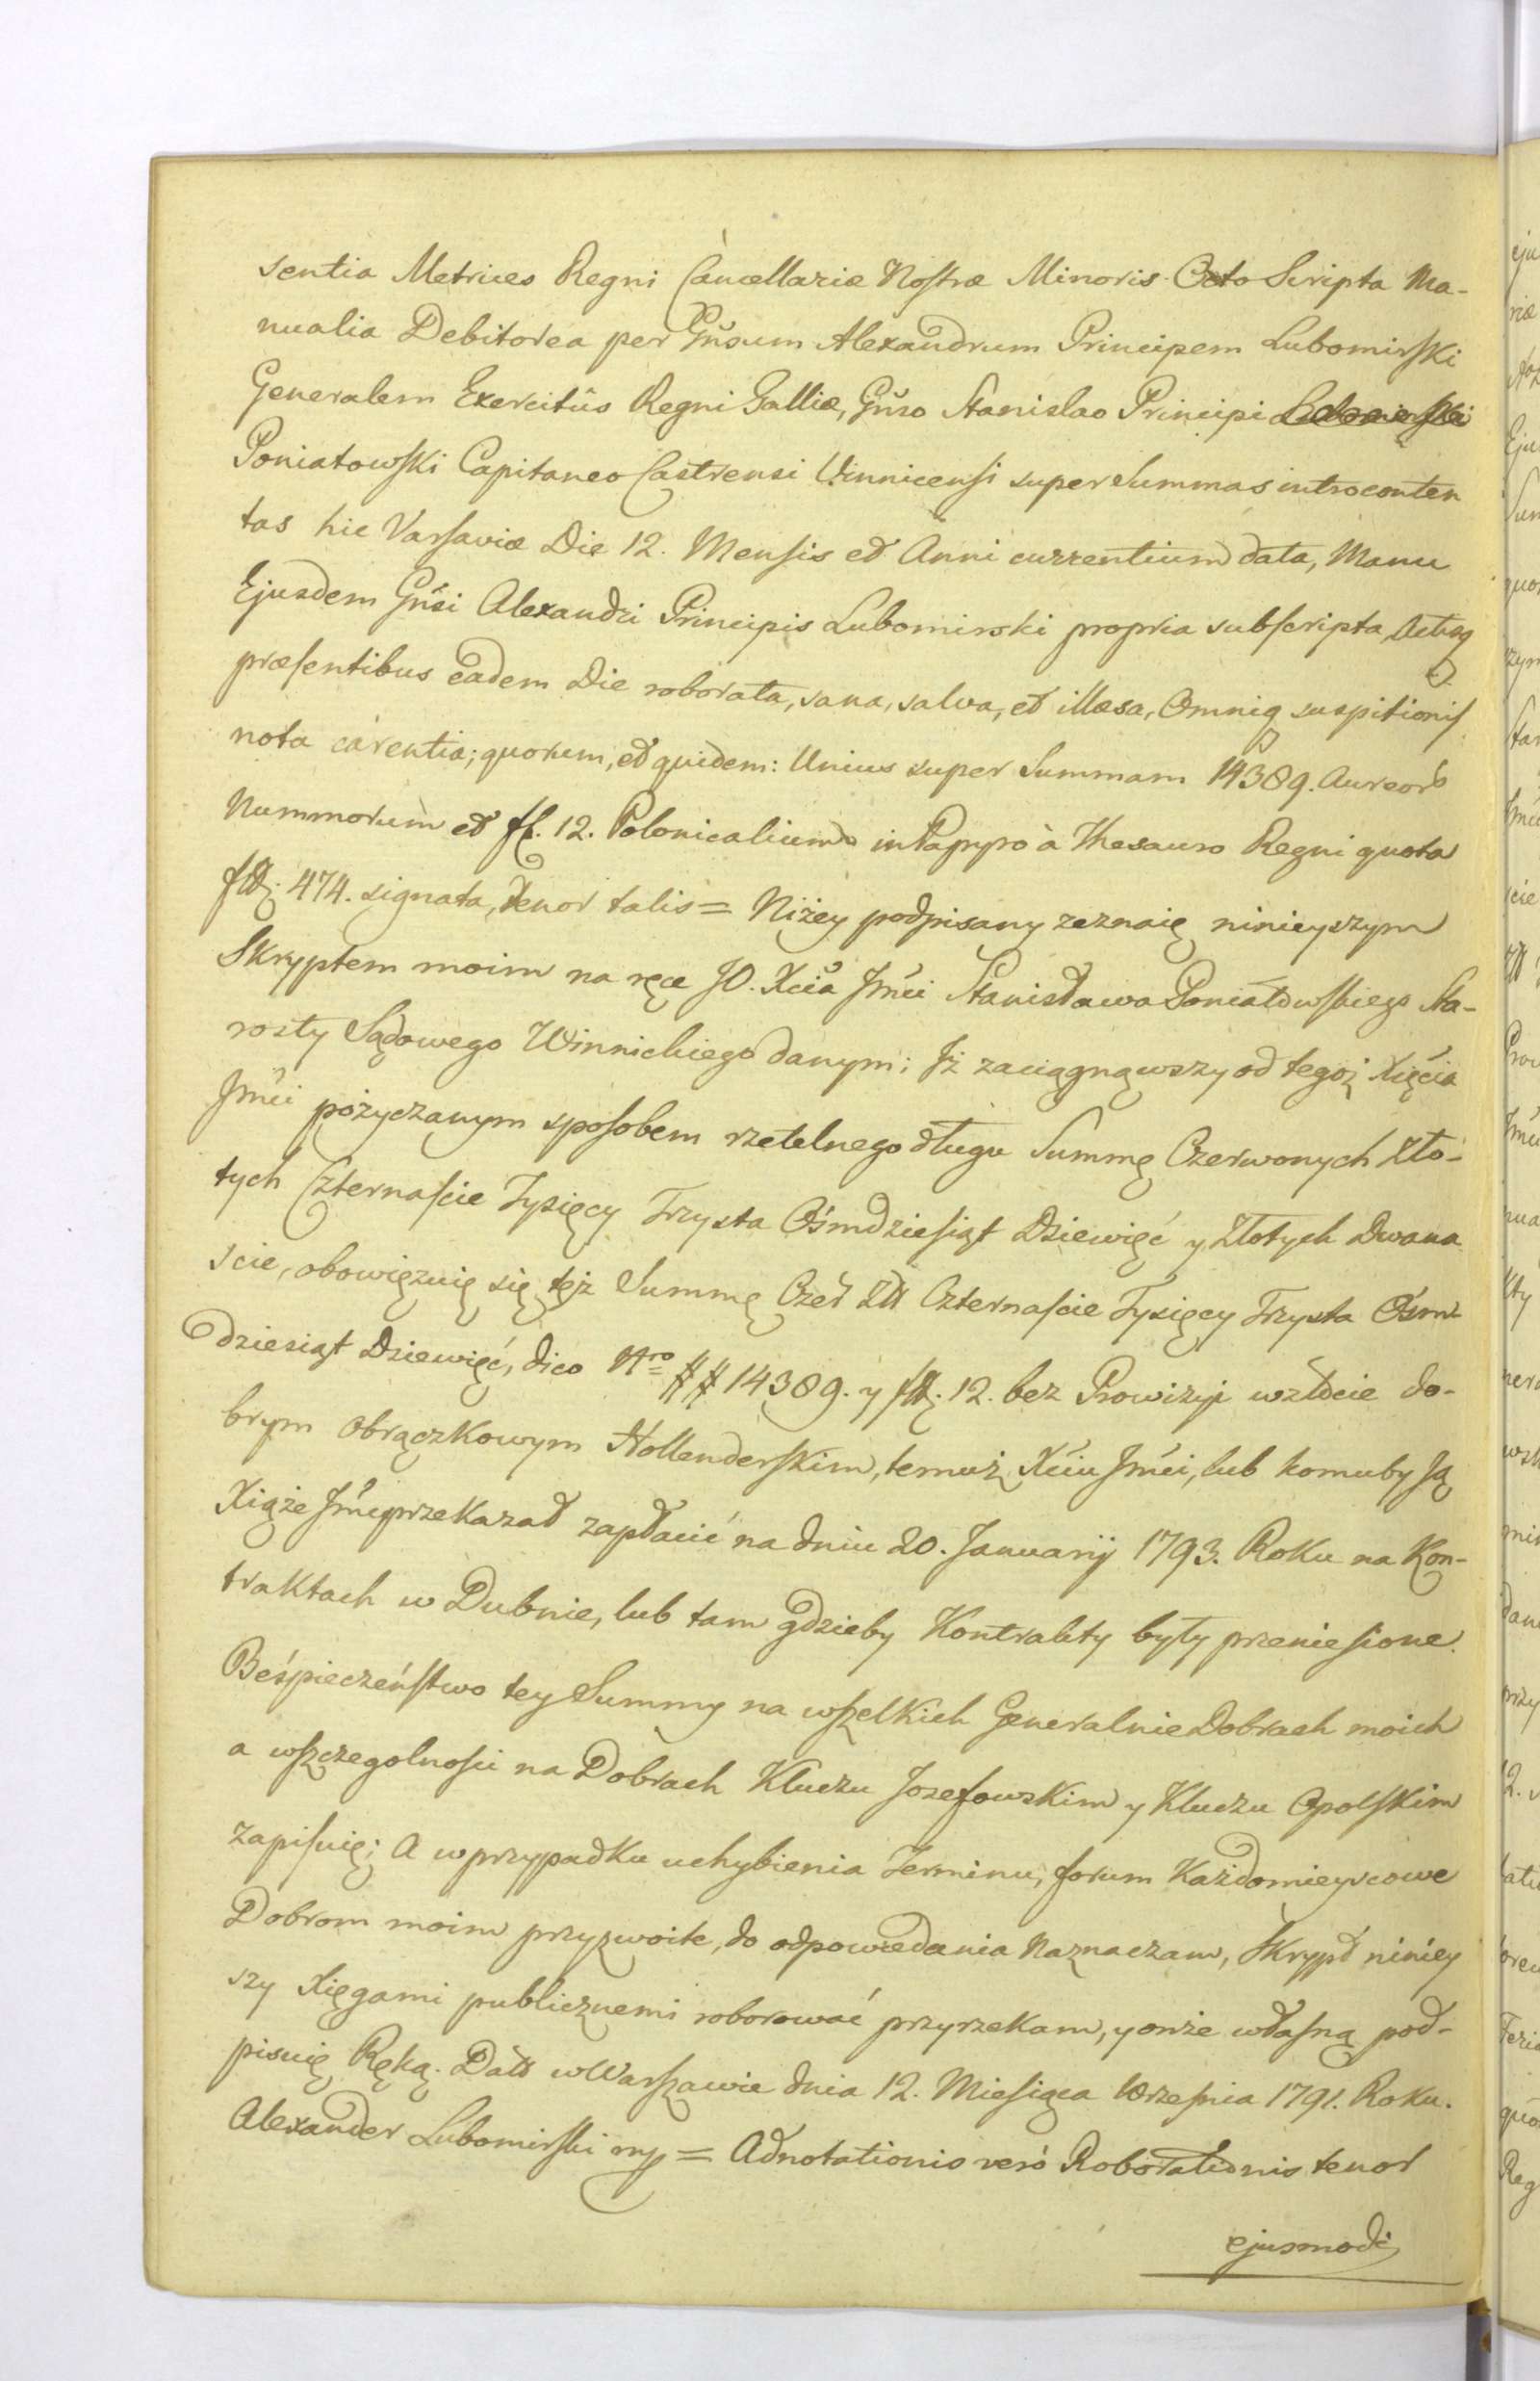 sentia Metrices Regni Cancellariæ Nostræ Minoris Octo Scripta Ma-
nualia Debitorea per Gñsum Alexandrum Principem Lubomirski
Generalem Exercitûs Regni Galliæ, Gñso Stanislao Principi Lubomirski
Poniatowski Capitaneo Castrensi Winnicensi super Summas introconten
tas hic Varsaviæ Die 12. Mensis et Anni currentium data, Manu
Ejusdem Gñsi Alexandri Principis Lubomirski propria subscripta, Actisq
præsentibus eadem Die roborata, sana, salva, et illæsa, Omniq suspitionis
nota carentia; quorum, et quidem: Unius super Summam 14389. Aureorũ
Nummorum et fl. 12. Polonicalium in Papyro à Thesauro Regni quota
fll. 474. signata, tenor talis = Niżey podpisany zeznaię ninieyszym
Skryptem moim na ręce JO. Xcia Jmći Stanisława Poniatowskiego Sta-
rosty Sądowego Winnickiego danym; Iż zaciągnąwszy od tegoż Xięcia
Jmći pożyczanym sposobem rzetelnego długu Summę Czerwonych Zło-
tych Czternaście Tysięcy Trzysta Ośmdziesiąt Dziewięć y Złotych Dwana
ście, obowięzuię się tęż Summę Czer Złł Czternaście Tysięcy Trzysta Ośm-
dziesiąt Dziewięć, dico Nro ## 14389. y fll. 12. bez Prowizyi w złocie do-
brym obrączkowym Hollenderskim, temuż Xciu Jmći, lub komuby ją
Xiąże Jmć przekazał zapłacić na dniu 20. Januarij 1793. Roku na Kon-
traktach w Dubnie, lub tam gdzieby Kontrakty były przeniesione.
Beśpieczeństwo tey Summy na wszelkich Generalnie Dobrach moich
a wszczegolności na Dobrach Kluczu Jozefowskim y Kluczu Opolskim
zapisuię; A w przypadku uchybienia Terminu, forum Każdomieyscowe
Dobrom moim przyzwoite, do odpowiedania Naznaczam, Skrypt niniey
szy Xięgami publicznemi roborować przyrzekam, y onże własną pod-
pisuię Ręką. Datt w Warszawie dnia 12. Miesiąca Września 1791. Roku.
Alexander Lubomirski mp = Adnotationis verò Roborationis tenor
ejusmodi